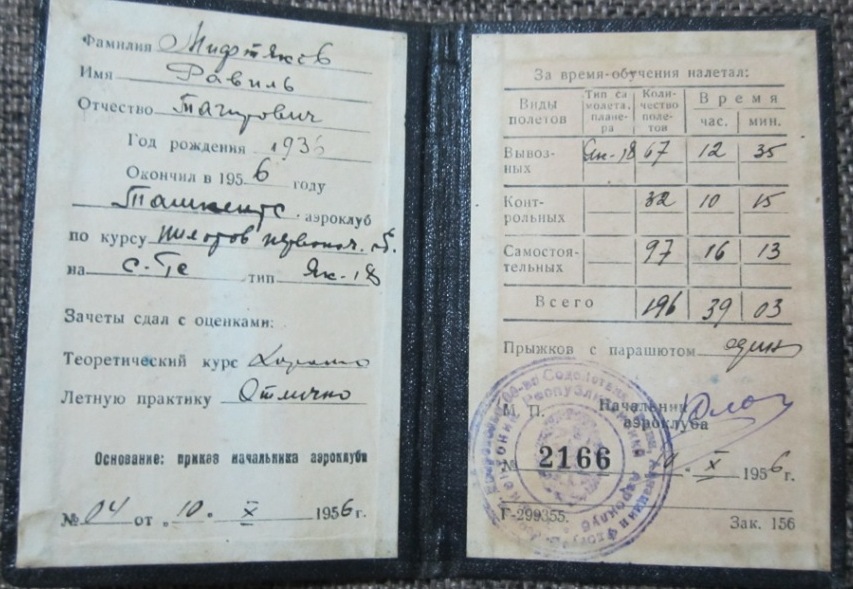 Фамилия Мифтяхов
Имя Равиль
Отчество Тагирович
Год рождения 1936
Окончил в 1956 году
Ташкентс. аэроклуб
по курсу пилотов первонач. об.
на с-те тип Як-18
Зачеты сдал с оценками:
Теоретический курс Хорошо
Летную практику Отлично
Основание: приказ начальника аэроклуба
№ 04 от 10. X 1956 г.
За время обучения налетал:
Виды полетов Тип самолета, планера Количество полетов Время
час. мин.
Вывозных Як-18 67 12 35
Контрольных 32 10 15
Самостоятельных 97 16 13
Всего 196 39 03
Прыжков с парашютом один
М. П. Начальник
аэроклуба
№ 2166 10. X 1956 г.
Г-299355. Зак. 156